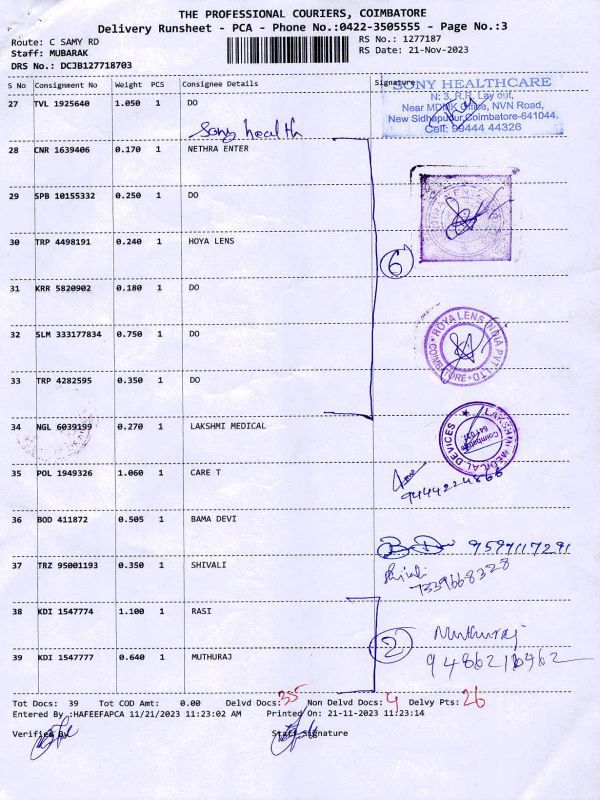 THE PROFESSIONAL COURIERS, COIMBATORE
Delivery Runsheet - PCA - Phone No.:0422-3505555 - Page No.:3
Route: C SAMY RD
RS No.: 1277187
Staff: MUBARAK
RS Date: 21-Nov-2023
DRS No.: DCJB127718703
S No Consignment No Weight PCS Consignee Details Signature
27 TVL 1925640 1.050 1 DO
Sony health
SONY HEALTHCARE
N: 3, R.K. Lay out,
Near MDMK Office, NVN Road,
New Sidhapudur, Coimbatore-641044.
Cell: 99444 44326
28 CNR 1639406 0.170 1 NETHRA ENTER
29 SPB 10155332 0.250 1 DO
30 TRP 4498191 0.240 1 HOYA LENS
6
31 KRR 5820902 0.180 1 DO
32 SLM 333177834 0.750 1 DO
HOYA LENS INDIA PVT. LTD.
COIMBATORE
33 TRP 4282595 0.350 1 DO
34 NGL 6039199 0.270 1 LAKSHMI MEDICAL
LAKSHMI MEDICAL DEVICES
Coimbatore
35 POL 1949326 1.060 1 CARE T
36 BOD 411872 0.505 1 BAMA DEVI
9597117291
37 TRZ 95001193 0.350 1 SHIVALI
7339668328
38 KDI 1547774 1.100 1 RASI
2
Muthuraj
39 KDI 1547777 0.640 1 MUTHURAJ
Tot Docs: 39 Tot COD Amt: 0.00 Delvd Docs: 35 Non Delvd Docs: 4 Delvy Pts: 26
Entered By :HAFEEFAPCA 11/21/2023 11:23:02 AM Printed On: 21-11-2023 11:23:14
Verified By
Staff Signature